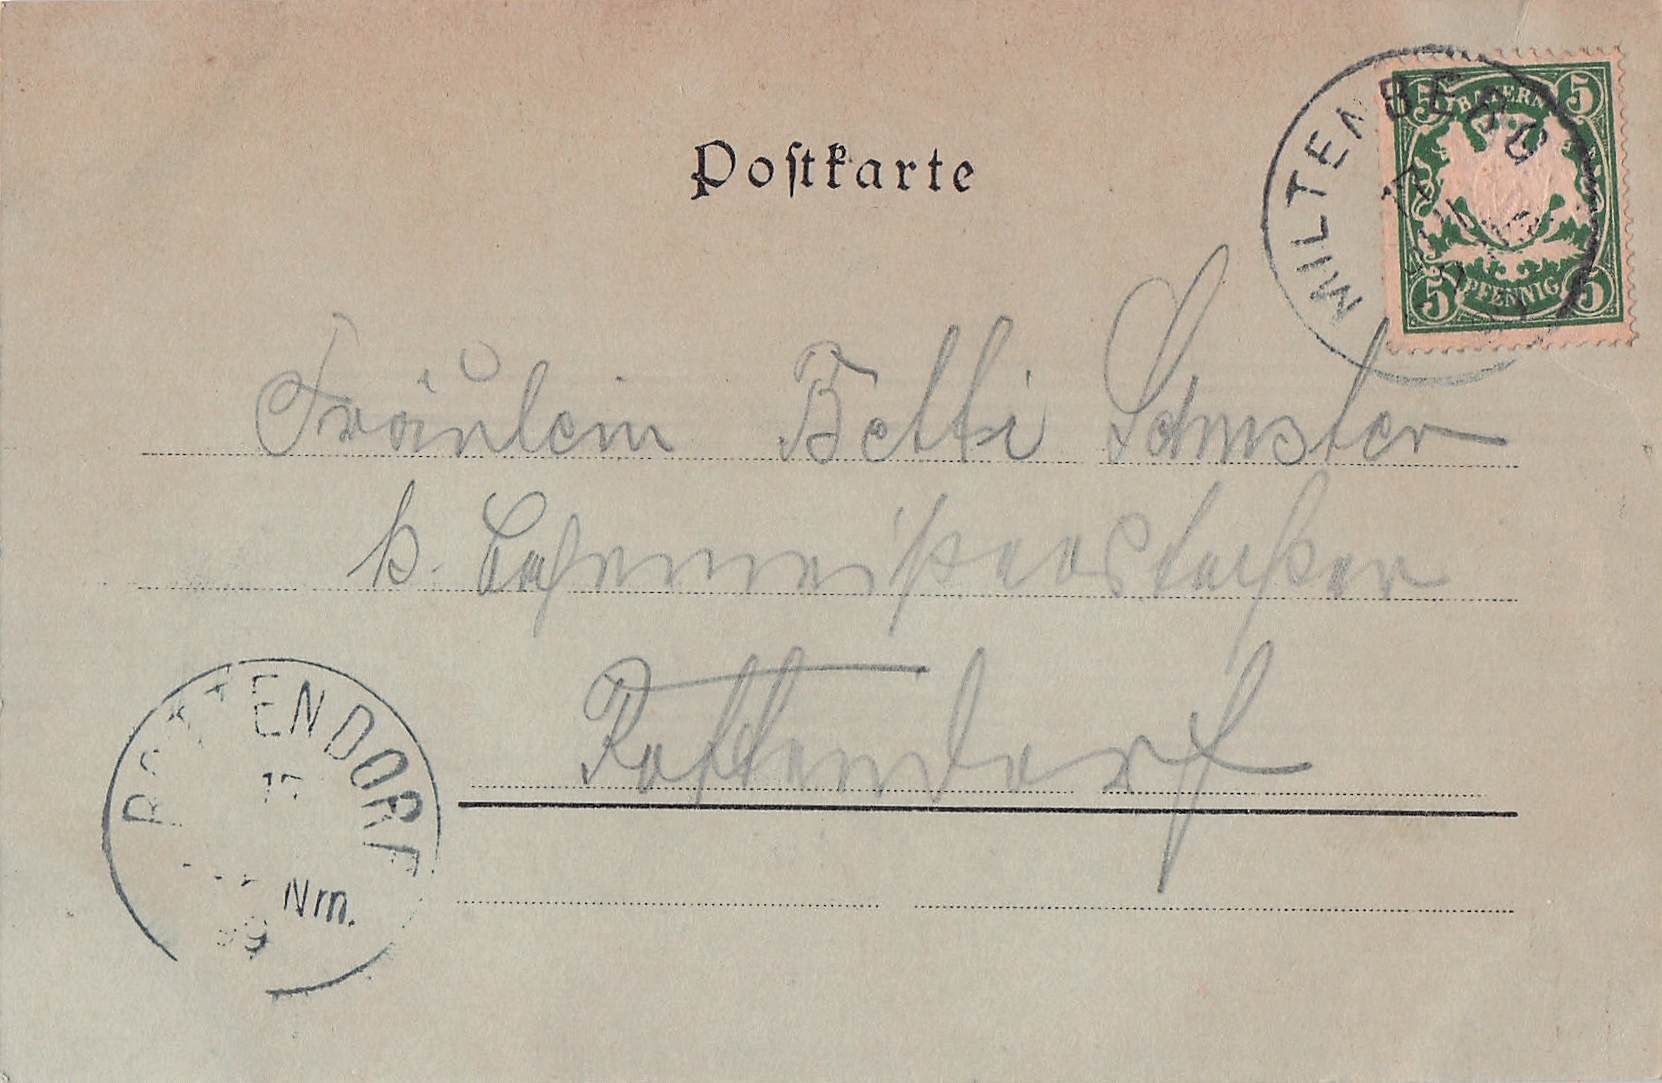 Postkarte
MILTENBERG
17
5 BAYERN 5
5 PFENNIG 5
Fräulein Betti Schuster
b.
Rottendorf
ROTTENDORF
17
Nm.
99